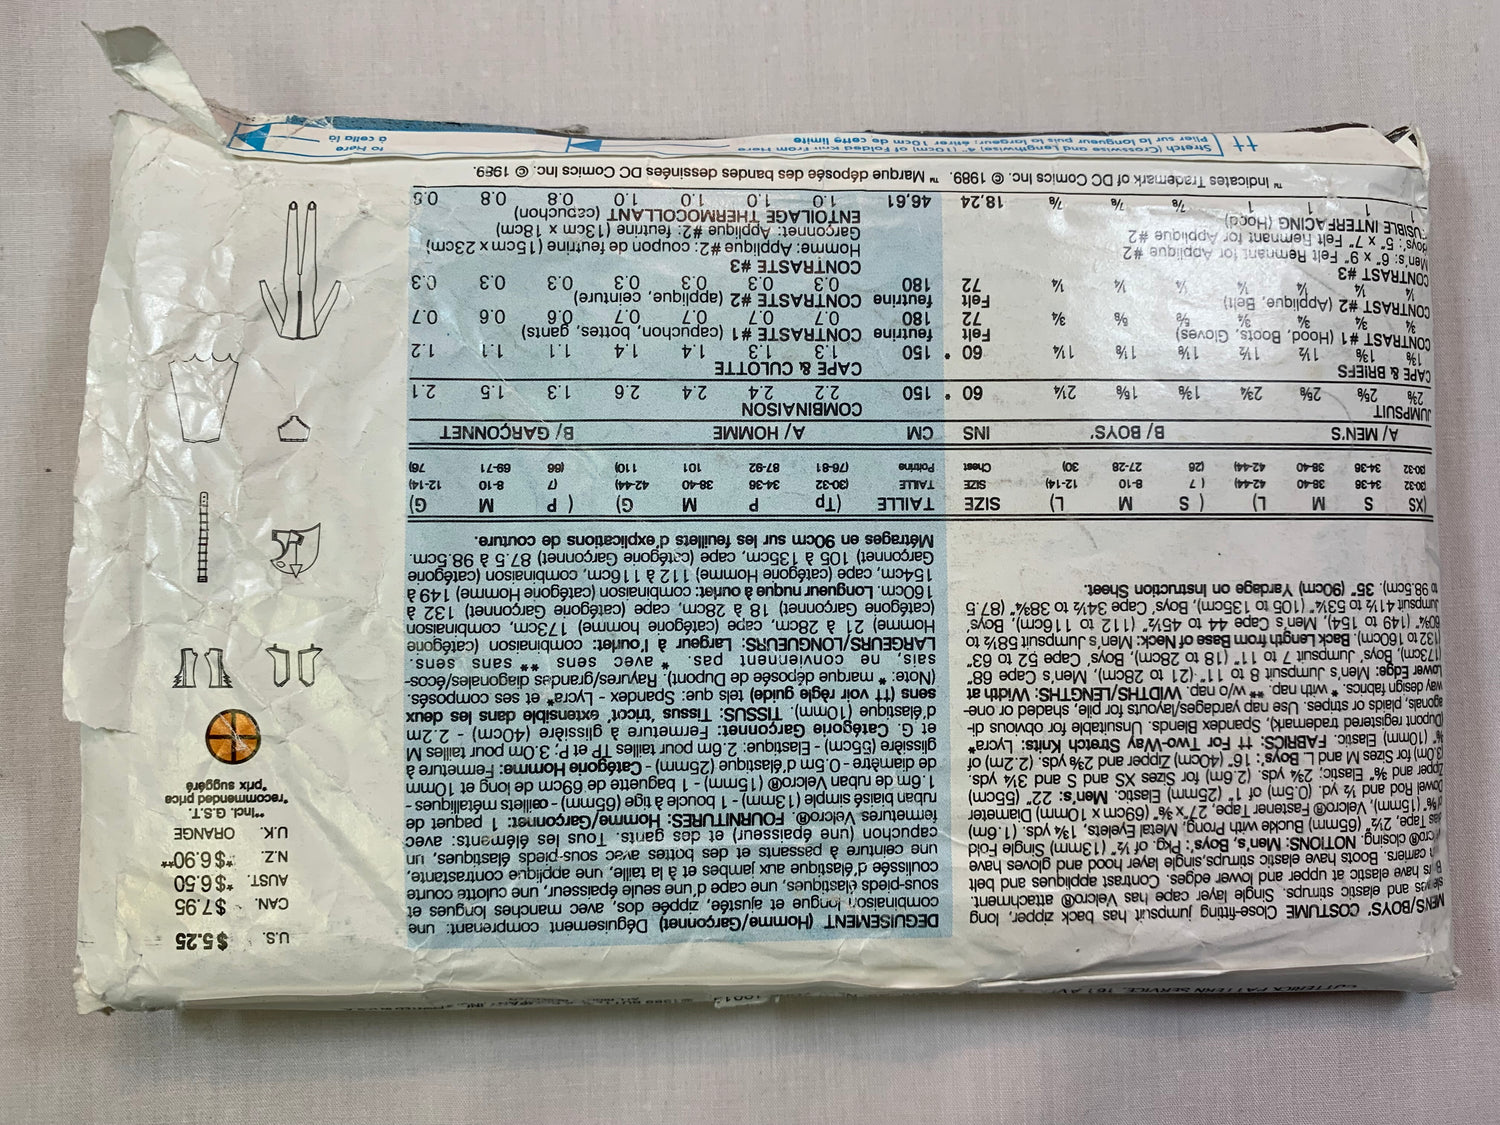 BUTTERICK PATTERN SERVICE, 161 AV
MEN'S/BOYS' COSTUME Close-fitting jumpsuit has back zipper, long
and elastic stirrups. Single layer cape has Velcro® attachment.
have elastic at upper and lower edges. Contrast appliques and belt
carriers. Boots have elastic stirrups, single layer hood and gloves have
closing. NOTIONS: Men's, Boys': Pkg. of ½" (13mm) Single Fold
Tape, 2½" (65mm) Buckle with Prong, Metal Eyelets, 1¾ yds. (1.6m)
(15mm), Velcro® Fastener Tape, 27"x⅜" (69cm x 10mm) Diameter
Dowel Rod and ½ yd. (0.5m) of 1" (25mm) Elastic. Men's: 22" (55cm)
Zipper and ⅜" Elastic; 2¾ yds. (2.6m) for Sizes XS and S and 3¼ yds.
(3.0m) for Sizes M and L Boys': 16" (40cm) Zipper and 2⅜ yds. (2.2m) of
⅜" (10mm) Elastic. FABRICS: †† For Two-Way Stretch Knits: Lycra*
(Dupont registered trademark), Spandex Blends. Unsuitable for obvious di-
agonals, plaids or stripes. Use nap yardages/layouts for pile, shaded or one-
way design fabrics. * with nap. ** w/o nap. WIDTHS/LENGTHS: Width at
Lower Edge: Men's Jumpsuit 8 to 11" (21 to 28cm), Men's Cape 68"
(173cm), Boys' Jumpsuit 7 to 11" (18 to 28cm), Boys' Cape 52 to 63"
(132 to 160cm). Back Length from Base of Neck: Men's Jumpsuit 58½ to
60¾" (149 to 154), Men's Cape 44 to 45½" (112 to 116cm), Boys'
Jumpsuit 41½ to 53¼" (105 to 135cm), Boys' Cape 34½ to 38¾" (87.5
to 98.5cm). 35" (90cm) Yardage on Instruction Sheet.
(XS S M L) ( S M L) SIZE
30-32 34-36 38-40 42-44) ( 7 8-10 12-14) SIZE
30-32 34-36 38-40 42-44) (26 27-28 30) Chest
A/ MEN'S B/ BOYS' INS
JUMPSUIT
2⅜ 2⅝ 2⅝ 2¾ 1⅜ 1⅝ 2¼ 60 *
CAPE & BRIEFS
1⅜ 1⅜ 1½ 1½ 1⅛ 1⅛ 1¼ 60 *
CONTRAST #1 (Hood, Boots, Gloves)
¾ ¾ ¾ ¾ ⅝ ⅝ ¾ 72 Felt
CONTRAST #2 (Applique, Belt)
¼ ¼ ¼ ¼ ¼ ¼ ¼ 72 Felt
CONTRAST #3
Men's: 6" x 9" Felt Remnant for Applique #2
Boys': 5" x 7" Felt Remnant for Applique #2
FUSIBLE INTERFACING (Hood)
1 1 1 1 ⅞ ⅞ ⅞ 18,24
™ Indicates Trademark of DC Comics Inc. © 1989.
DEGUISEMENT (Homme/Garçonnet) Déguisement comprenant: une
combinaison longue et ajustée, zippée dos, avec manches longues et
sous-pieds élastiques, une cape d'une seule épaisseur, une culotte courte
coulissée d'élastique aux jambes et à la taille, une applique contrastante,
une ceinture à passants et des bottes avec sous-pieds élastiques, un
capuchon (une épaisseur) et des gants. Tous les éléments: avec
fermetures Velcro®. FOURNITURES: Homme/Garçonnet: 1 paquet de
ruban biaisé simple (13mm) - 1 boucle à tige (65mm) - œillets métalliques -
1.6m de ruban Velcro® (15mm) - 1 baguette de 69cm de long et 10mm
de diamètre - 0.5m d'élastique (25mm) - Catégorie Homme: Fermeture à
glissière (55cm) - Elastique: 2.6m pour tailles TP et P; 3.0m pour tailles M
et G. Catégorie Garçonnet: Fermeture à glissière (40cm) - 2.2m
d'élastique (10mm). TISSUS: Tissus 'tricot' extensible dans les deux
sens (†† voir règle guide) tels que: Spandex - Lycra* et ses composés.
(Note: * marque déposée de Dupont). Rayures/grandes diagonales/écos-
sais, ne conviennent pas. * avec sens ** sans sens.
LARGEURS/LONGUEURS: Largeur à l'ourlet: combinaison (catégorie
Homme) 21 à 28cm, cape (catégorie homme) 173cm, combinaison
(catégorie Garçonnet) 18 à 28cm, cape (catégorie Garçonnet) 132 à
160cm. Longueur nuque à ourlet: combinaison (catégorie Homme) 149 à
154cm, cape (catégorie Homme) 112 à 116cm, combinaison (catégorie
Garçonnet) 105 à 135cm, cape (catégorie Garçonnet) 87.5 à 98.5cm.
Métrages en 90cm sur les feuillets d'explications de couture.
TAILLE (Tp P M G) ( P M G)
TAILLE (30-32 34-36 38-40 42-44) (7 8-10 12-14)
Poitrine (76-81 87-92 101 110) (66 69-71 76)
CM A/ HOMME B/ GARÇONNET
COMBINAISON
150 2.2 2.4 2.4 2.6 1.3 1.5 2.1
CAPE & CULOTTE
150 1.3 1.3 1.4 1.4 1.1 1.1 1.2
feutrine CONTRASTE #1 (capuchon, bottes, gants)
180 0.7 0.7 0.7 0.7 0.6 0.6 0.7
feutrine CONTRASTE #2 (applique, ceinture)
180 0.3 0.3 0.3 0.3 0.3 0.3 0.3
CONTRASTE #3
Homme: Applique #2: coupon de feutrine (15cm x 23cm)
Garçonnet: Applique #2: feutrine (13cm x 18cm)
ENTOILAGE THERMOCOLLANT (capuchon)
46,61 1.0 1.0 1.0 1.0 0.8 0.8 0.8
™ Marque déposée des bandes dessinées DC Comics Inc. © 1989.
U.S. $5.25
CAN. $7.95
AUST. *$6.50
N.Z. *$6.90**
U.K. ORANGE
**Incl. G.S.T.
*recommended price
*prix suggéré
†† Stretch (Crosswise and Lengthwise) 4" (10cm) of Folded Knit From Here
Plier sur la longueur puis la largeur; étirer 10cm de cette limite
to Here
à cella là